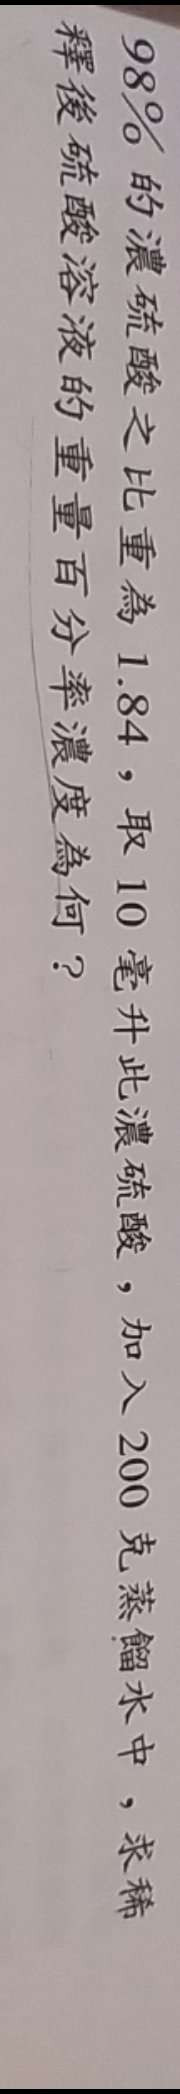 98%的濃硫酸之比重為1.84，取10毫升此濃硫酸，加入200克蒸餾水中，求稀
釋後硫酸溶液的重量百分率濃度為何？